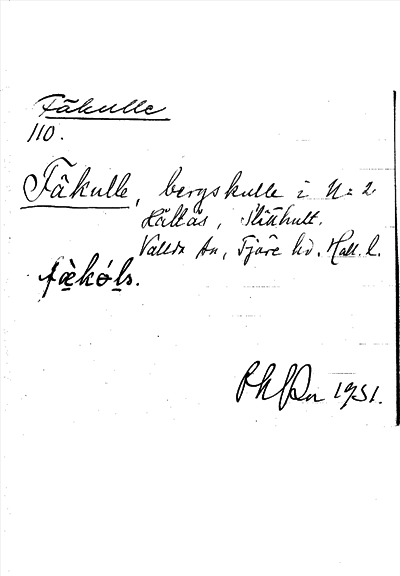 Fäkulle
110.
Fäkulle, bergskulle i N:2
Hältås, Släthult.
Vallda sn, Fjäre hd. Hall. l.
fæ̀kó̠ls.
1951.